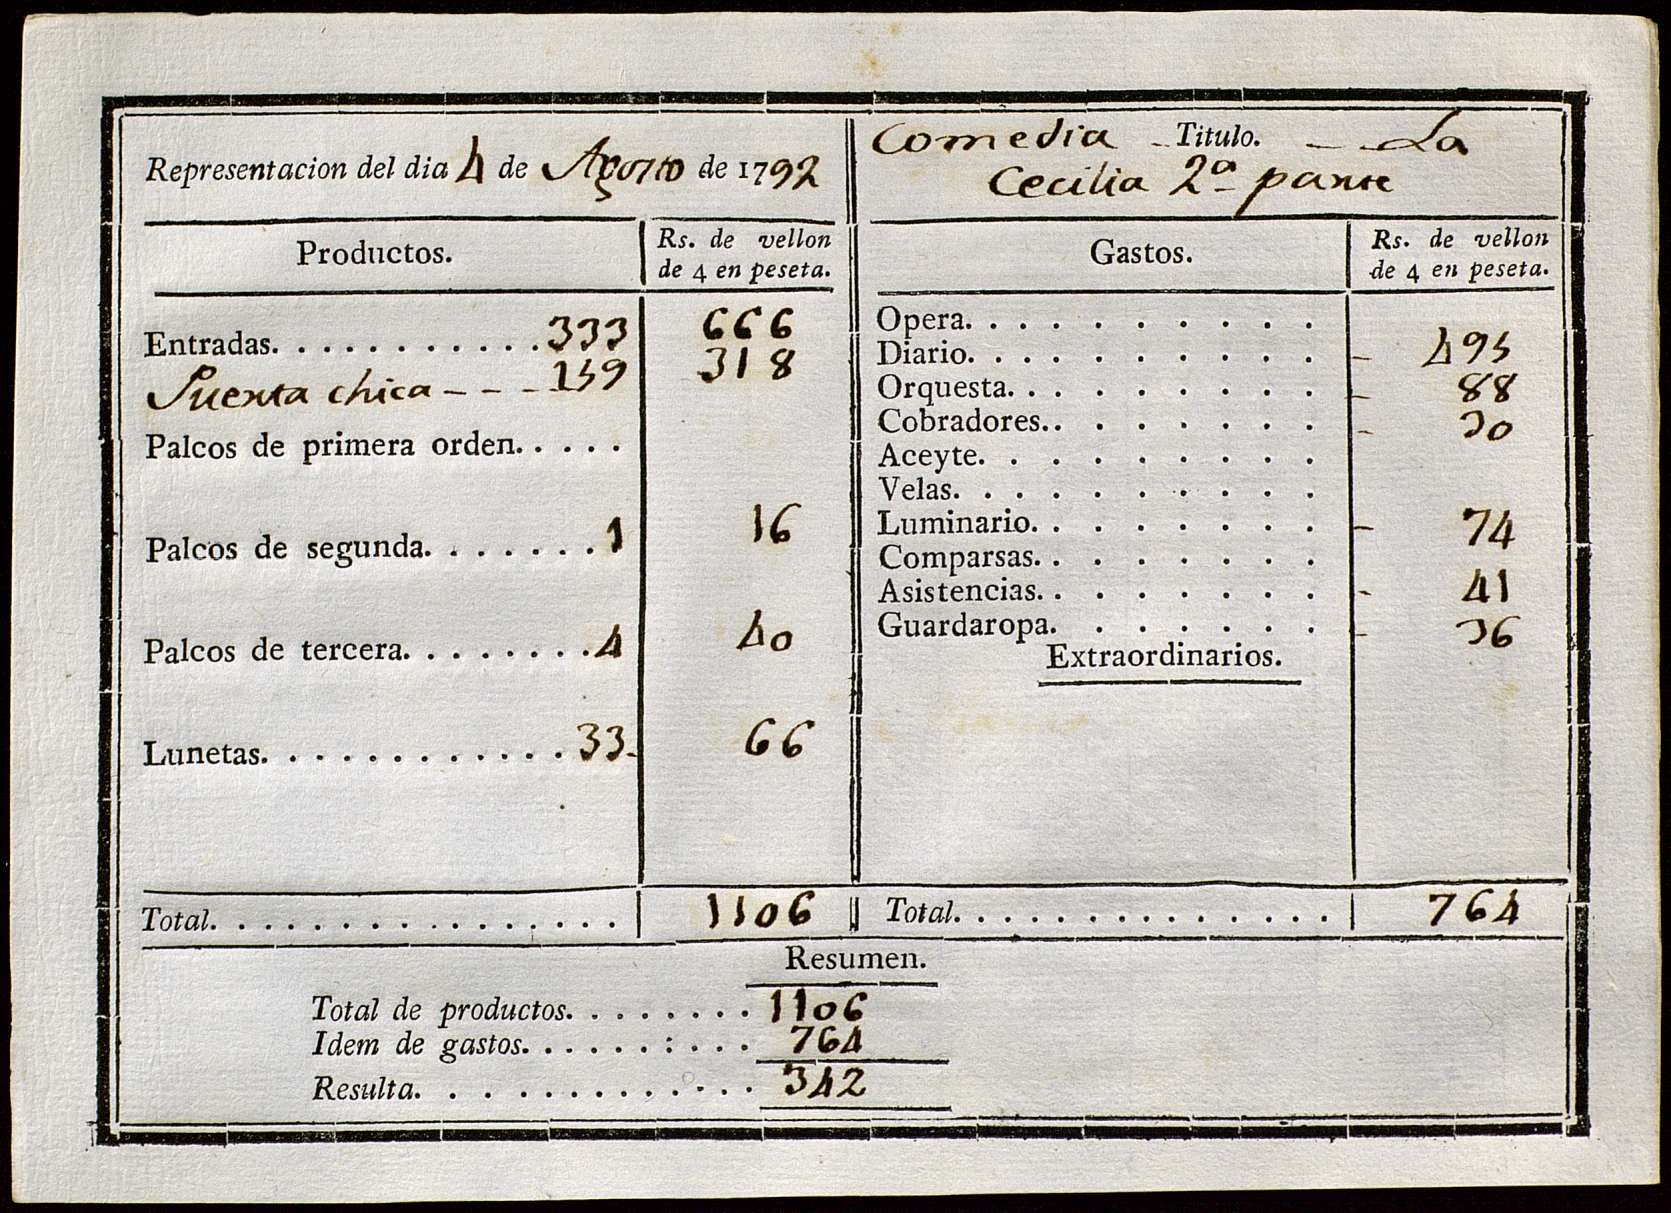 Representacion del dia 4 de Agosto de 1792
Comedia Titulo. La
Cecilia 2ª parte
Productos.
Rs. de vellon
de 4 en peseta.
Entradas. . . . . . . . . . . 333 666
Puerta chica - - - 159 318
Palcos de primera orden. . . . .
Palcos de segunda. . . . . . . 1 16
Palcos de tercera. . . . . . . . 4 40
Lunetas. . . . . . . . . . . . 33 66
Total. . . . . . . . . . . . . . . . 1106
Gastos.
Rs. de vellon
de 4 en peseta.
Opera. . . . . . . . . .
Diario. . . . . . . . . . - 495
Orquesta. . . . . . . . . - 88
Cobradores.. . . . . . . - 30
Aceyte. . . . . . . . .
Velas. . . . . . . . . .
Luminario. . . . . . . . - 74
Comparsas. . . . . . . .
Asistencias. . . . . . . . - 41
Guardaropa. . . . . . . - 36
Extraordinarios.
Total. . . . . . . . . . . . . . . 764
Resumen.
Total de productos. . . . . . . . 1106
Idem de gastos. . . . . . : . . . 764
Resulta. . . . . . . . . . . . 342